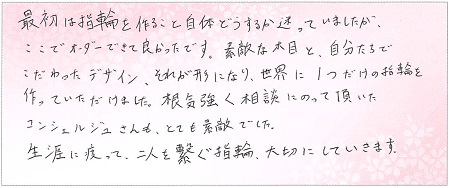 最初は指輪を作ること自体どうするか迷っていましたが、
ここでオーダーできて良かったです。素敵な木目と、自分たちで
こだわったデザイン、それが形になり、世界に1つだけの指輪を
作っていただけました。根気強く相談にのって頂いた
コンシェルジュさんも、とても素敵でした。
生涯に渡って、二人を繋ぐ指輪、大切にしていきます。